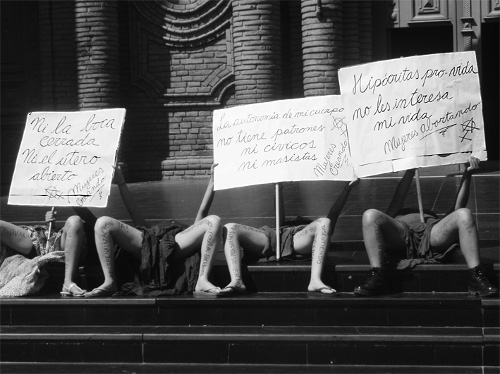 Ni la boca
cerrada
Ni el útero
abierto
Mujeres
Creando
La autonomía de mi cuerpo
no tiene patrones
ni cívicos
ni masistas
Mujeres
Creando
Hipócritas pro-vida
no les interesa
mi vida
Mujeres abortando